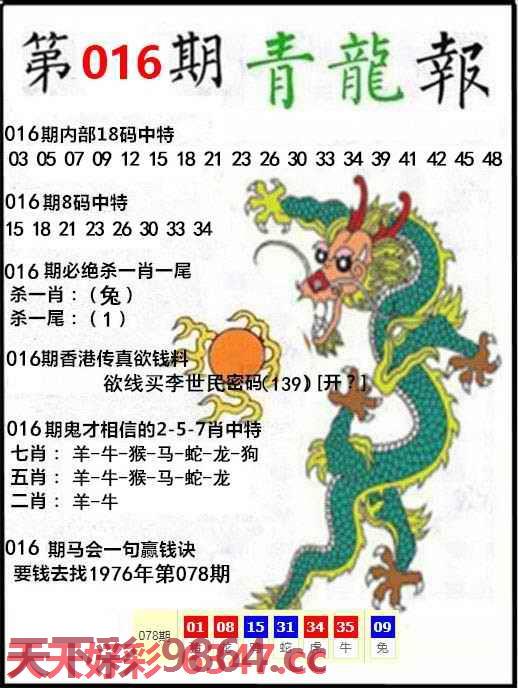 第016期青龍報
016期内部18码中特
03 05 07 09 12 15 18 21 23 26 30 33 34 39 41 42 45 48
016期8码中特
15 18 21 23 26 30 33 34
016期必绝杀一肖一尾
杀一肖：（兔）
杀一尾：（1）
016期香港传真欲钱料
欲线买李世民密码(139)[开？]
016期鬼才相信的2-5-7肖中特
七肖：羊-牛-猴-马-蛇-龙-狗
五肖：羊-牛-猴-马-蛇-龙
二肖：羊-牛
016 期马会一句赢钱诀
要钱去找1976年第078期
078期 01 08 15 31 34 35 09
蛇 虎 兔
9864.cc